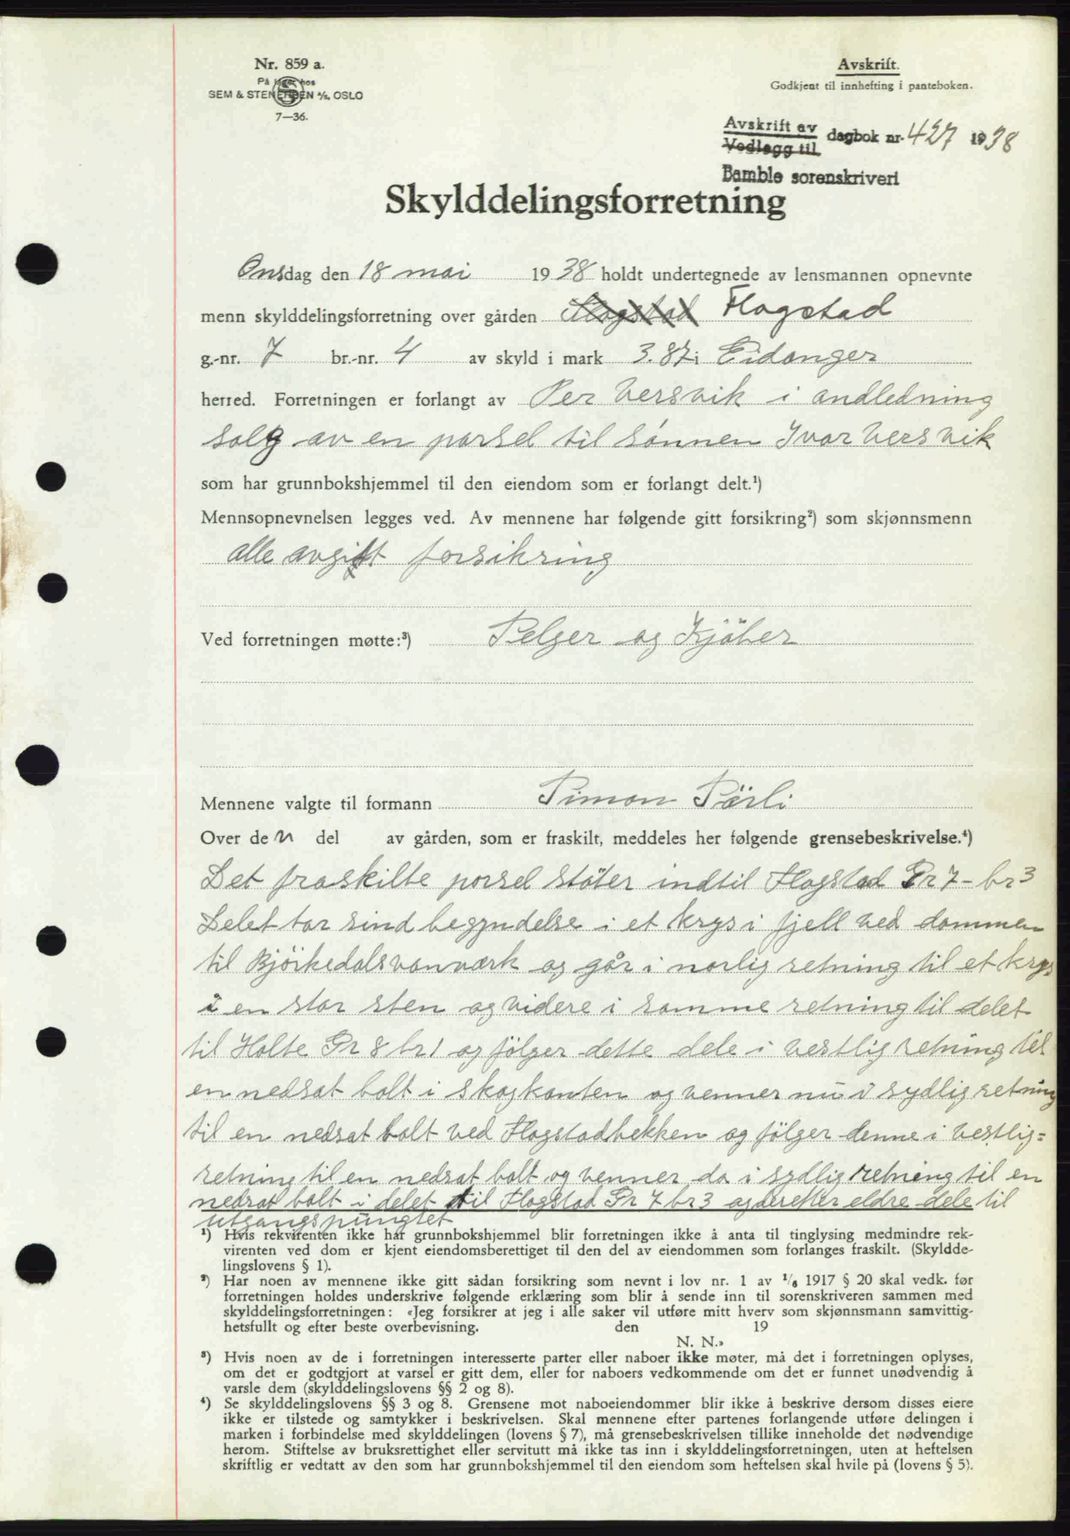 Nr. 859 a.
På lager hos
SEM & STENERSEN A/S, OSLO
7—36.
Avskrift.
Godkjent til innhefting i panteboken.
Avskrift av
Vedlagg til
dagbok nr. 427 1938
Bamble sorenskriveri
Skylddelingsforretning
Onsdag den 18 mai 1938 holdt undertegnede av lensmannen opnevnte
menn skylddelingsforretning over gården Flogstad Flogstad
g.-nr. 7 br.-nr. 4 av skyld i mark 3.87 i Eidanger
herred. Forretningen er forlangt av Per Versvik i andledning
salg av en parsel til sønnen Ivar Versvik
som har grunnbokshjemmel til den eiendom som er forlangt delt.¹)
Mennsopnevnelsen legges ved. Av mennene har følgende gitt forsikring²) som skjønnsmenn
alle avgitt forsikring
Ved forretningen møtte:³) Selger og Kjöber
Mennene valgte til formann Simon Pörli
Over den del av gården, som er fraskilt, meddeles her følgende grensebeskrivelse.⁴)
Det fraskilte parsel stöter indtil Flogstad Gr 7 - br 3
Delet tar sind begyndelse i et krys i fjell ved dammen
til Bjørkedalsvanværk og går i norlig retning til et krys
i en stor sten og videre i samme retning til delet
til Holte Gr 8 br 1 og fölger dette dele i vestlig retning til
en nedsat bolt i skogkanten og venner nu i sydlig retning
til en nedsat bolt ved Flogstadbekken og fölger denne i vestlig=
retning til en nedsat bolt og venner da i sydlig retning til en
nedsat bolt i delet til Flogstad Gr 7 br 3 og derefter eldre dele til
utgangspungtet
¹) Hvis rekvirenten ikke har grunnbokshjemmel blir forretningen ikke å anta til tinglysing medmindre rek-
virenten ved dom er kjent eiendomsberettiget til den del av eiendommen som forlanges fraskilt. (Skyldde-
lingslovens § 1).
²) Har noen av mennene ikke gitt sådan forsikring som nevnt i lov nr. 1 av 1/6 1917 § 20 skal vedk. før
forretningen holdes underskrive følgende erklæring som blir å sende inn til sorenskriveren sammen med
skylddelingsforretningen: «Jeg forsikrer at jeg i alle saker vil utføre mitt hverv som skjønnsmann samvittig-
hetsfullt og efter beste overbevisning. den 19
N. N.»
³) Hvis noen av de i forretningen interesserte parter eller naboer ikke møter, må det i forretningen oplyses,
om det er godtgjort at varsel er gitt dem, eller for naboers vedkommende om det er funnet unødvendig å
varsle dem (skylddelingslovens §§ 2 og 8).
⁴) Se skylddelingslovens §§ 3 og 8. Grensene mot naboeiendommer blir ikke å beskrive dersom disses eiere
ikke er tilstede og samtykker i beskrivelsen. Skal mennene efter partenes forlangende utføre delingen i
marken i forbindelse med skylddelingen (lovens § 7), må grensebeskrivelsen tillike inneholde det nødvendige
herom. Stiftelse av bruksrettighet eller servitutt må ikke tas inn i skylddelingsforretningen, uten at heftelsen
skriftlig er vedtatt av den som har grunnbokshjemmel til den eiendom som heftelsen skal hvile på (lovens § 5).